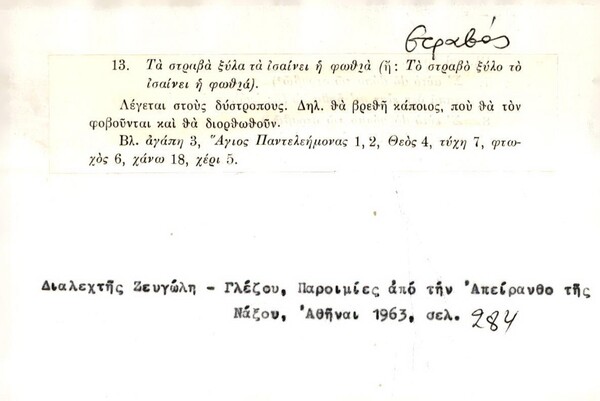 στραβός
13. Τὰ στραβὰ ξύλα τὰ ἰσαίνει ἡ φωθιˬά (ἤ: Τὸ στραβὸ ξύλο τὸ
ἰσαίνει ἡ φωθιˬά).
Λέγεται στοὺς δύστροπους. Δηλ. θὰ βρεθῆ κάποιος, ποὺ θὰ τὸν
φοβοῦνται καὶ θὰ διορθωθοῦν.
Βλ. ἀγάπη 3, Ἅγιος Παντελεήμονας 1, 2, Θεὸς 4, τύχη 7, φτω-
χὸς 6, χάνω 18, χέρι 5.
Διαλεχτῆς Ζευγώλη - Γλέζου, Παροιμίες ἀπό τήν Ἀπείρανθο τῆς
Νάξου, Ἀθῆναι 1963, σελ. 284